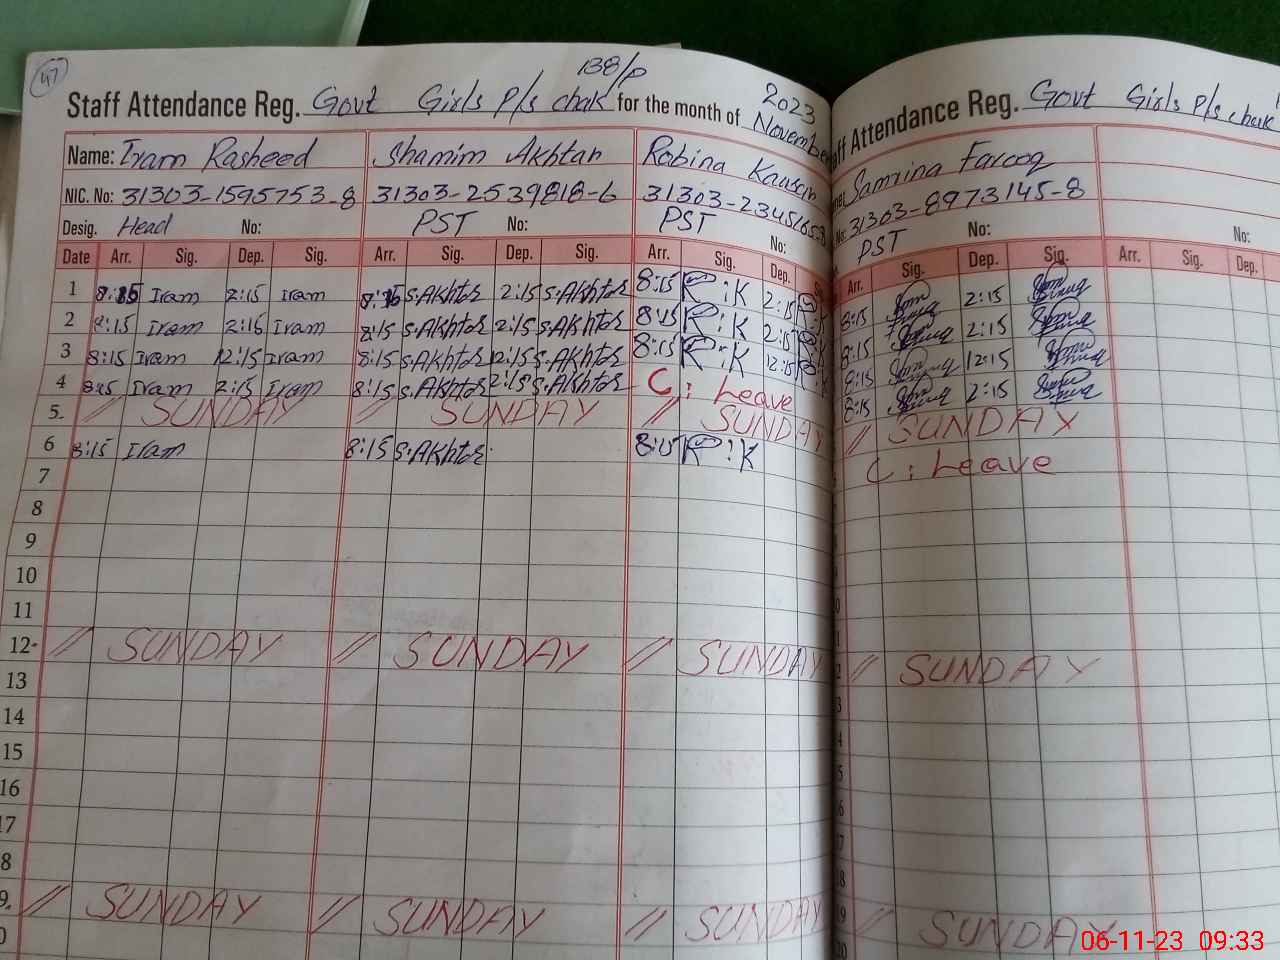 47
138/P
Staff Attendance Reg. Govt Girls P/s chak for the month of November 2023
Name: Iram Rasheed Shamim Akhtar Robina Kausar
NIC. No: 31303-1595753-8 31303-2539818-6
Desig. Head No: PST PST No:
Date Arr. Sig. Dep. Sig. Arr. Sig. Dep. Sig. Arr. Sig. Dep.
1 8:15 Iram 2:15 Iram S.Akhtar 2:15 S.Akhtar 8:15 R:K 2:15
2 8:15 Iram 2:15 Iram 8:15 S.Akhtar 2:15 S.Akhtar 8:15 R:K 2:15
3 8:15 Iram 12:15 Iram 8:15 S.Akhtar 12:15 S.Akhtar 8:15 R:K 12:15
4 8:15 Iram 2:15 Iram 8:15 S.Akhtar 2:15 S.Akhtar C: Leave
5. // SUNDAY // SUNDAY // SUNDAY
6 8:15 Iram 8:15 S.Akhtar 8:15 R:K
7
8
9
10
11
12 // SUNDAY // SUNDAY // SUNDAY
13
14
15
16
17
8
9. // SUNDAY // SUNDAY // SUNDAY
0
aff Attendance Reg. Govt Girls P/s chak
Samina Farooq
31303-8973145-8
PST No: No:
Arr. Sig. Dep. Sig. Arr. Sig. Dep.
8:15 2:15
8:15 2:15
8:15 12:15
8:15 2:15
// SUNDAY
C: Leave
// SUNDAY
// SUNDAY
06-11-23 09:33